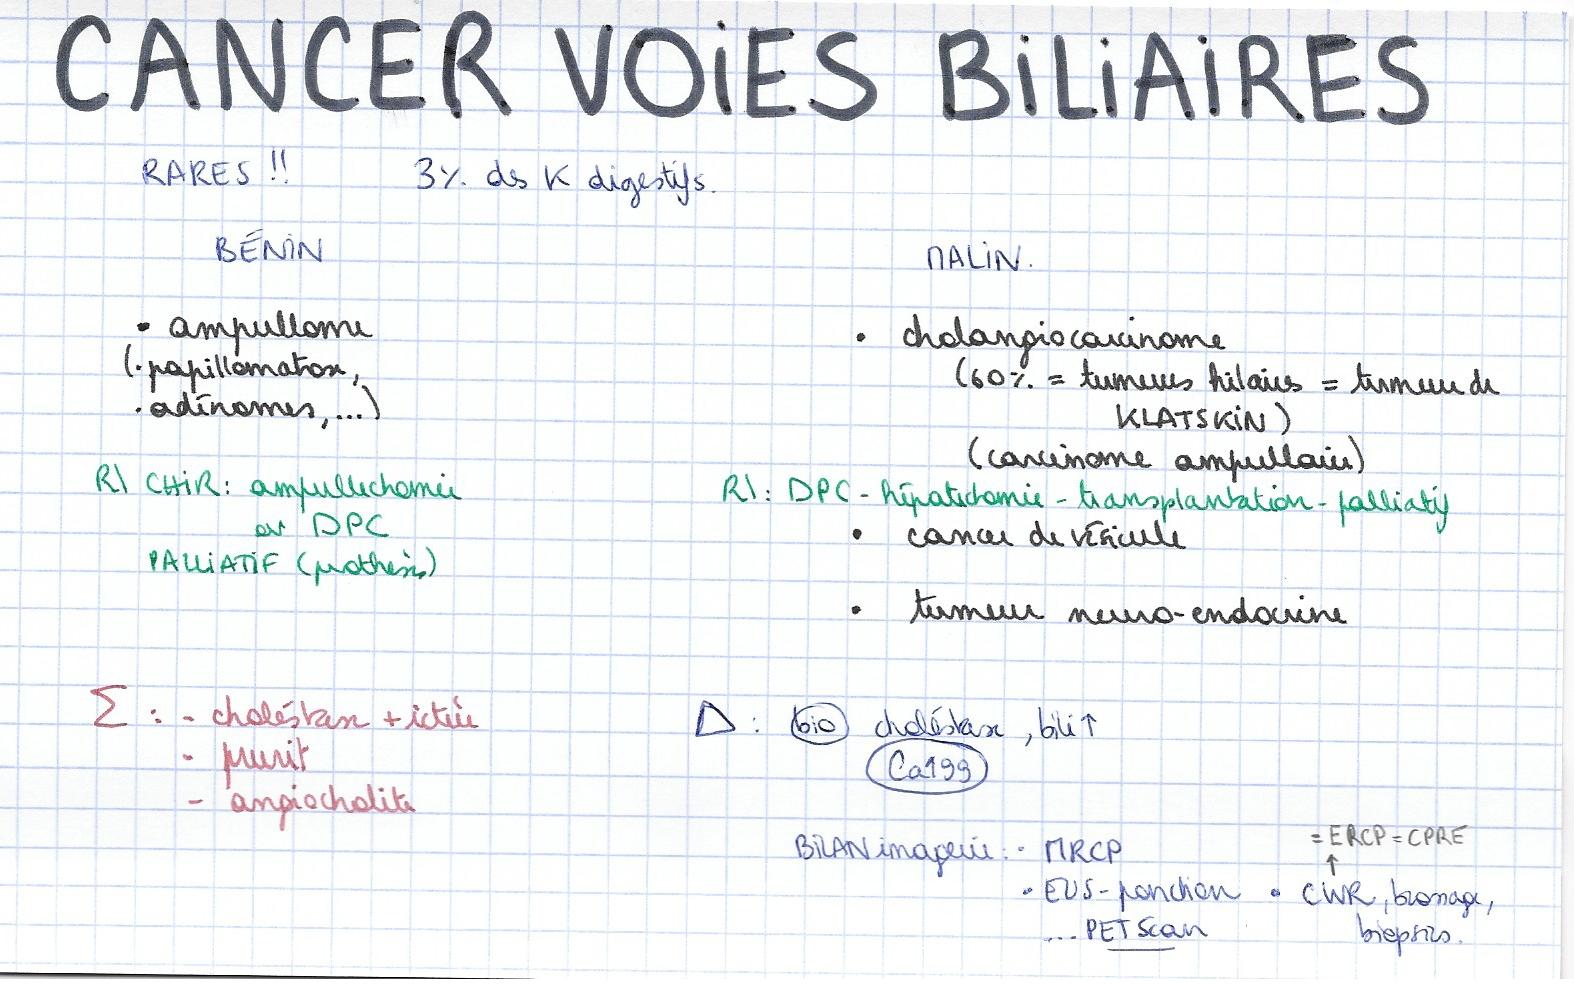 CANCER VOIES BILIAIRES
RARES !! 3% des K digestifs.
BÉNIN
• ampullome
(· papillomatose,
· adénomes, ...)
R\ CHIR: ampullectomie
ou DPC
PALLIATIF (prothèses)
MALIN.
• cholangiocarcinome
(60% = tumeurs hilaires = tumeur de
KLATSKIN)
(carcinome ampullaire)
R\ : DPC - hépatectomie - transplantation - palliatif
• cancer de vésicule
• tumeur neuro-endocrine
Σ : - choléstase + ictère
- prurit
- angiocholite
Δ : bio choléstase, bili ↑
Ca199
BILAN imagerie : · MRCP
• EUS - ponction
... PET Scan
= ERCP = CPRE
↑
• CWR, brossage,
biopsies.